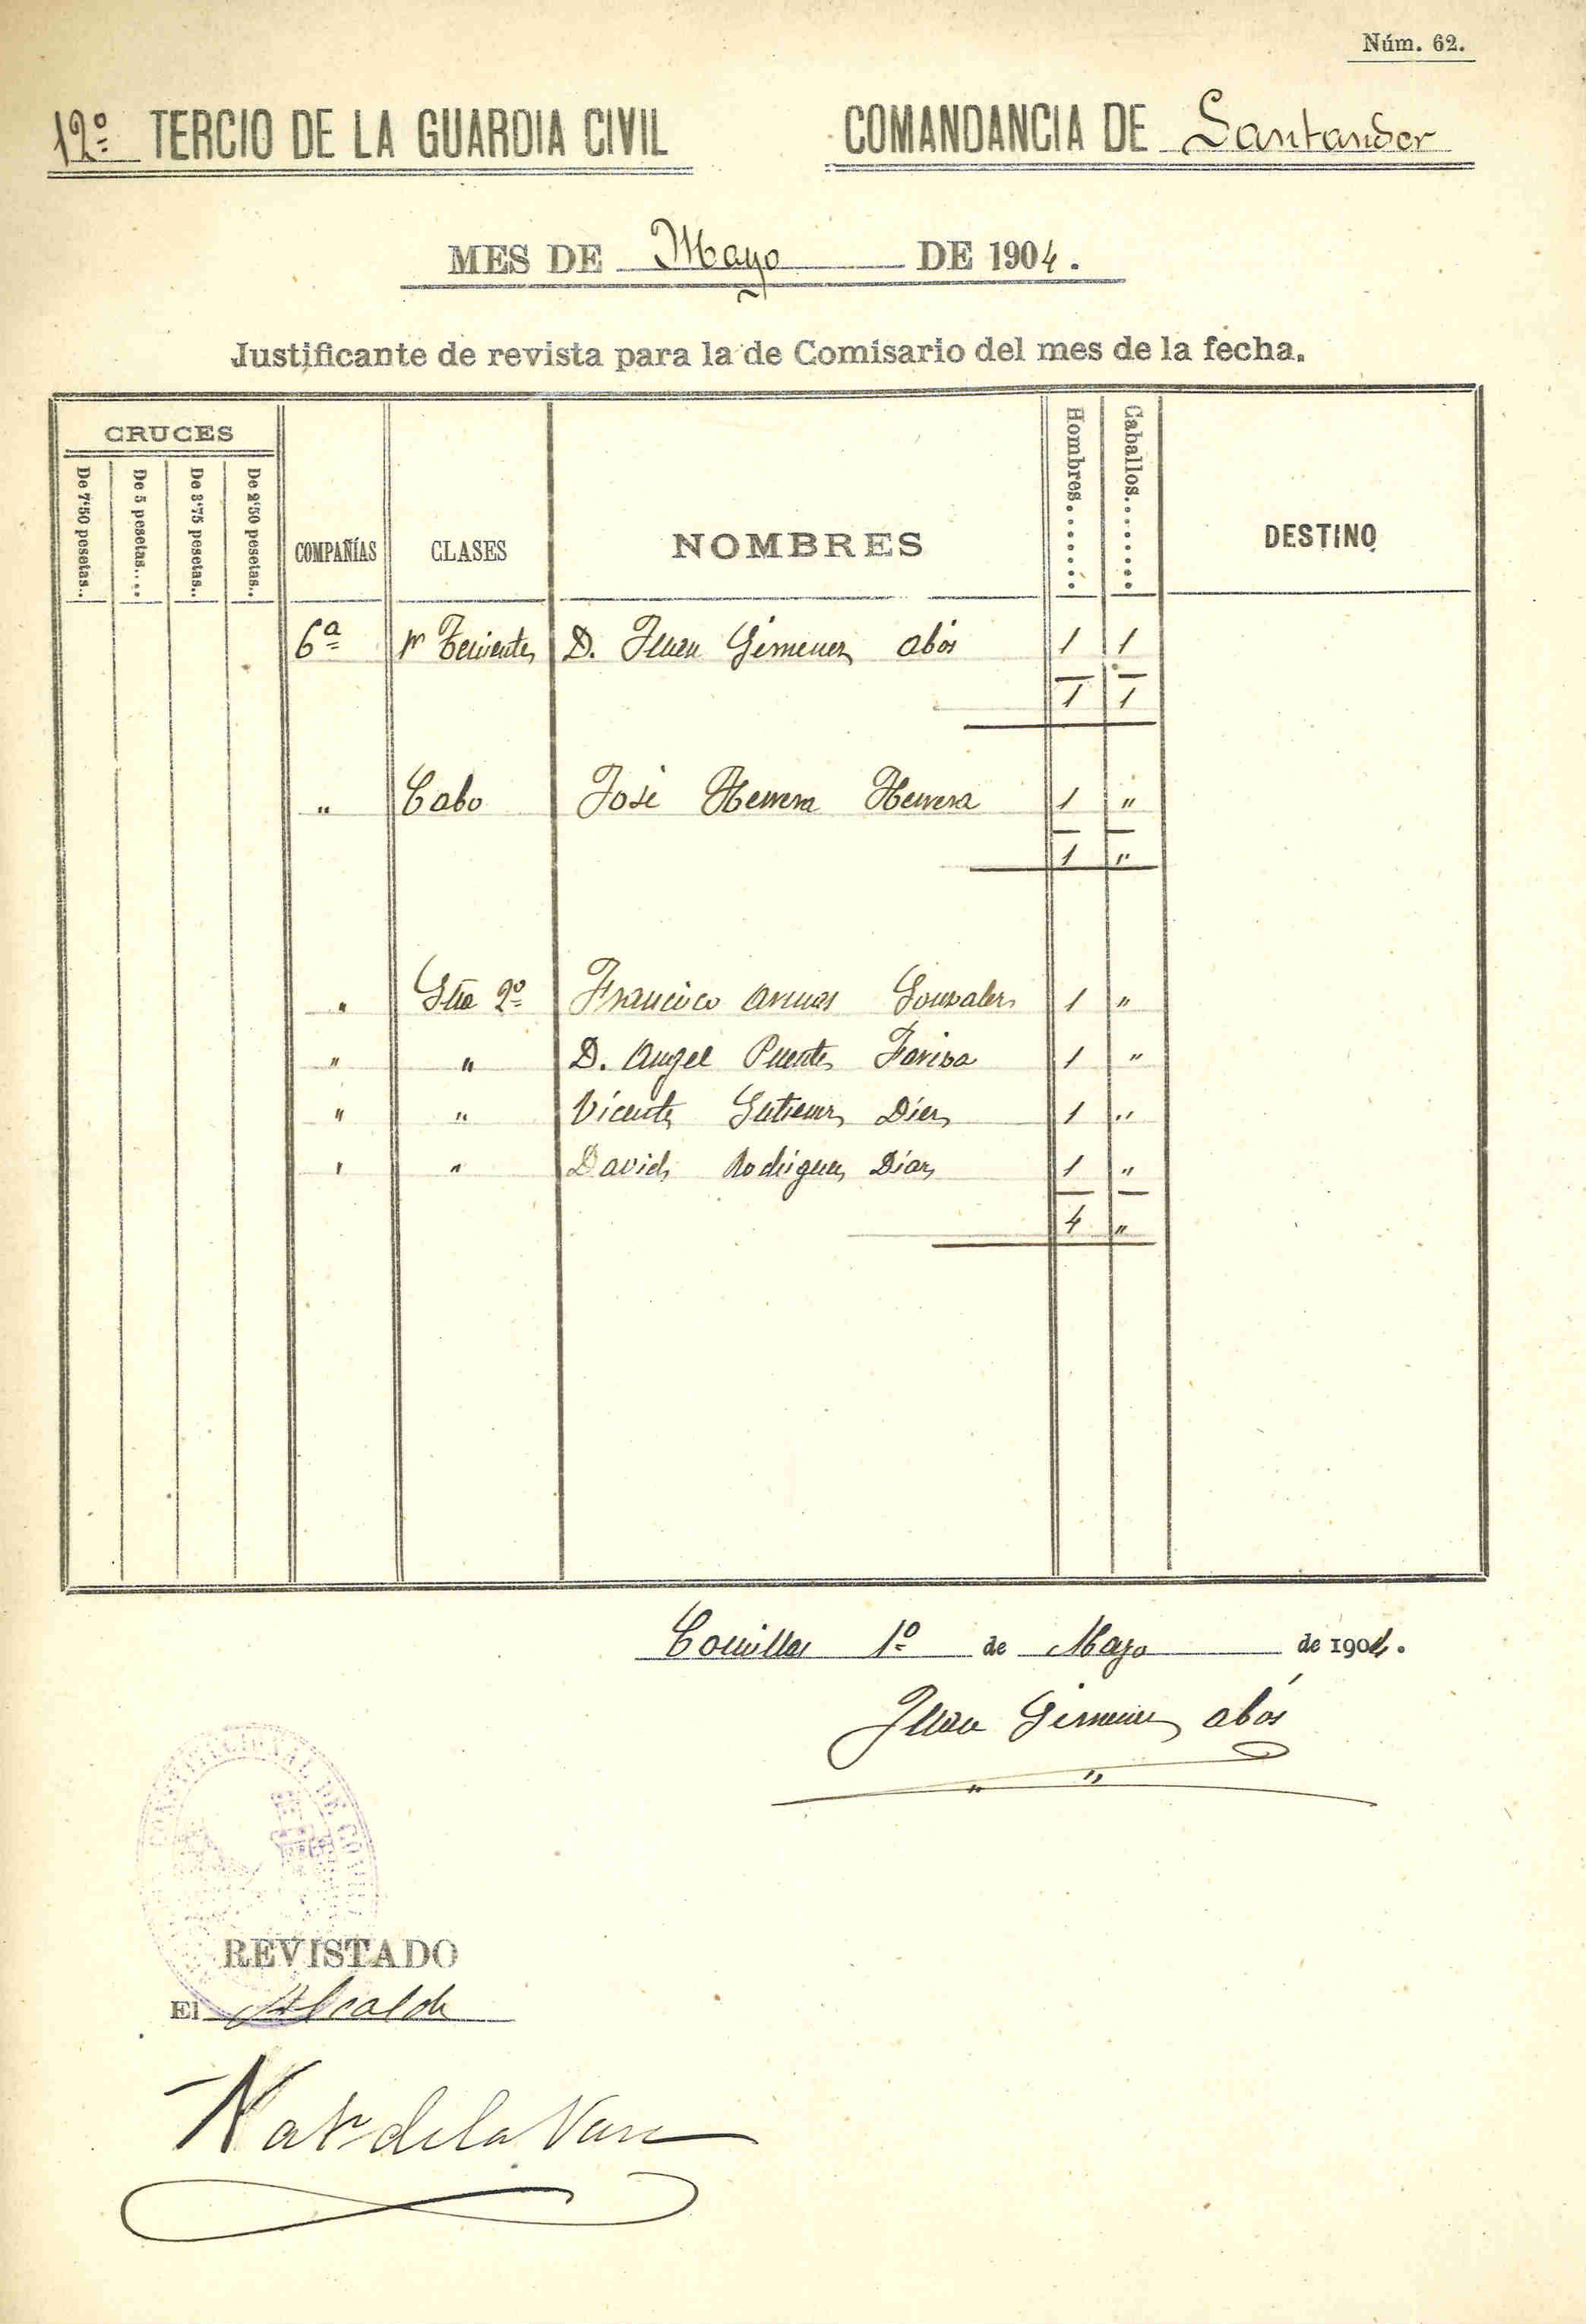 Núm. 62.
12º TERCIO DE LA GUARDIA CIVIL COMANDANCIA DE Santander
MES DE Mayo DE 1904.
Justificante de revista para la de Comisario del mes de la fecha.
CRUCES
De 7'50 pesetas..
De 5 pesetas....
De 3'75 pesetas..
De 2'50 pesetas..
COMPAÑÍAS
CLASES
NOMBRES
Hombres........
Caballos........
DESTINO
6ª 1r Teniente D. Juan Gimenez Abós 1 1
1 1
" Cabo José Herrera Herrera 1 "
1 "
" Gdia 2º Francisco Gonzalez 1 "
" " D. Angel Puente 1 "
" " Vicente Gutierrez Diez 1 "
" " David Rodriguez Díaz 1 "
4 "
Comillas 1º de Mayo de 1904.
Juan Gimenez Abós
CONSTITUCIONAL DE COMILLAS
REVISTADO
El Alcalde
de la